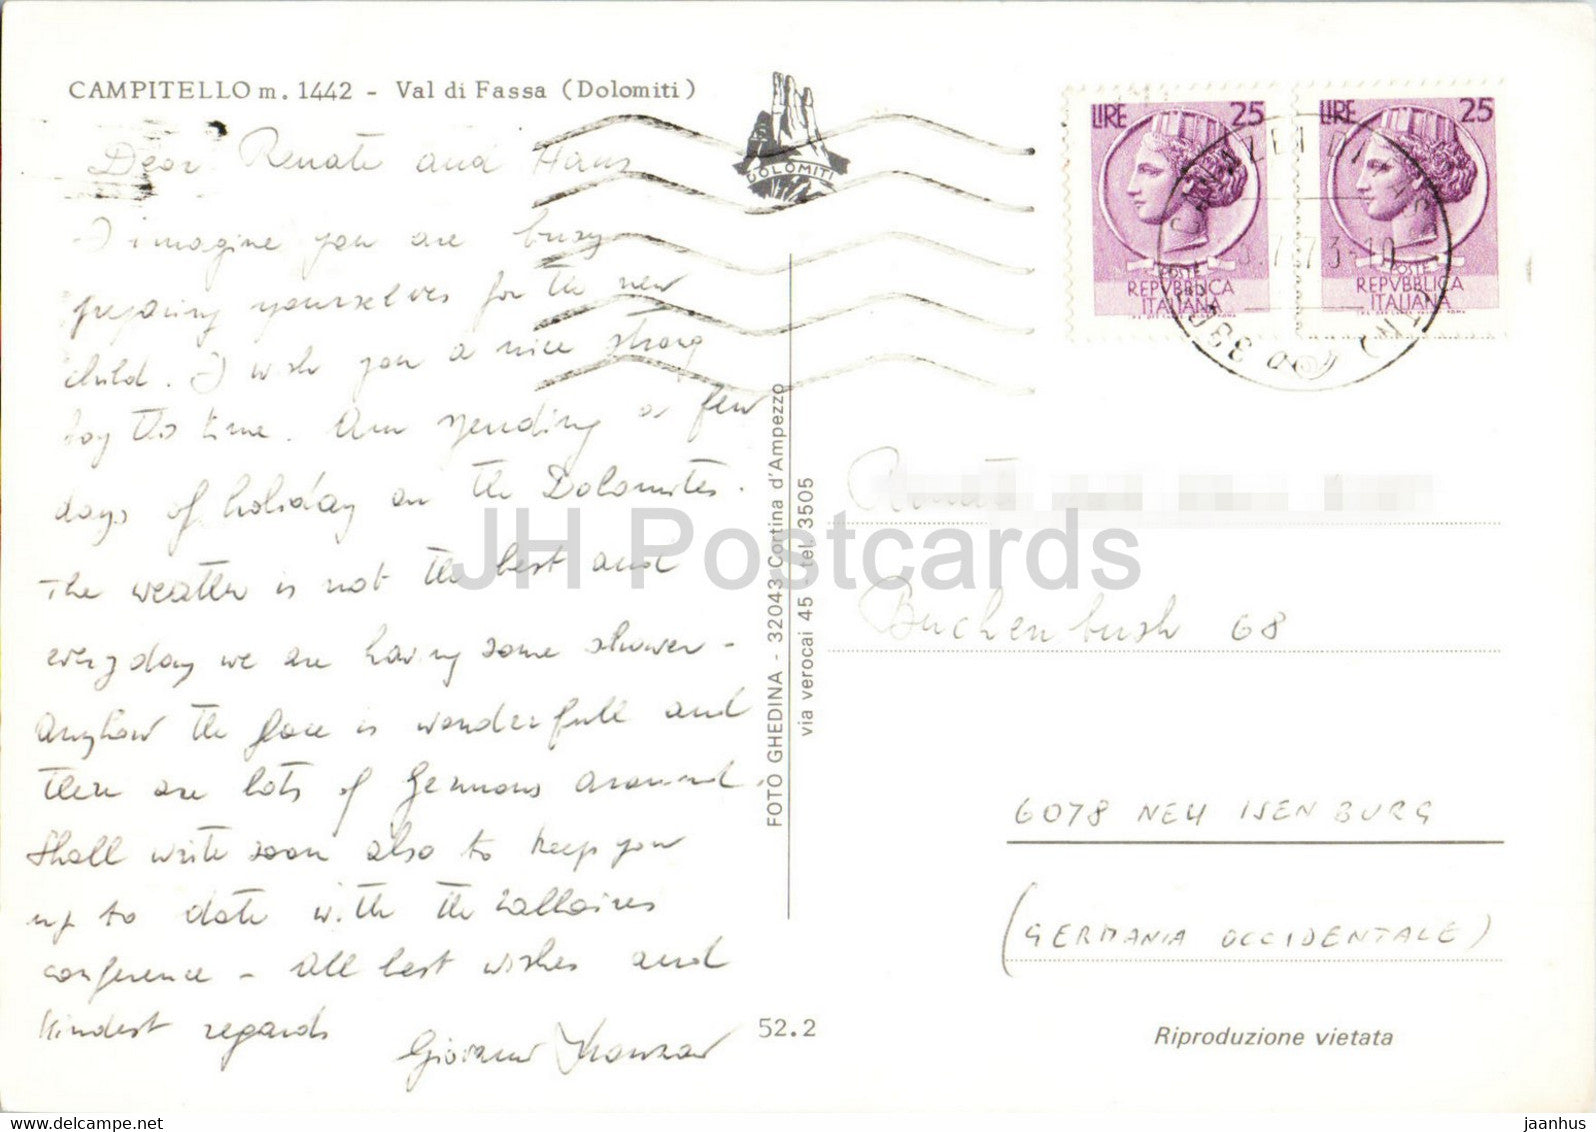 CAMPITELLO m. 1442 - Val di Fassa (Dolomiti)
Dear Renate and Hans
I imagine you are busy
preparing yourselves for the new
child. I wish you a nice strong
boy this time. Am spending a few
days of holiday on the Dolomites.
The weather is not the best and
everyday we are having some shower -
Anyhow the place is wonderfull and
there are lots of Germans around.
Shall write soon also to keep you
up to date with the
conference - All best wishes and
kindest regards
Giovanni
52.2
DOLOMITI
FOTO GHEDINA - 32043 Cortina d'Ampezzo
via verocai 45 - tel. 3505
LIRE 25
POSTE
REPVBBLICA
ITALIANA
LIRE 25
POSTE
REPVBBLICA
ITALIANA
CANAZEI DI FASSA
7 73-10
Renate
Buchenbush 68
6078 NEU ISENBURG
(GERMANIA OCCIDENTALE)
Riproduzione vietata
JH Postcards
jaanhus
www.delcampe.net